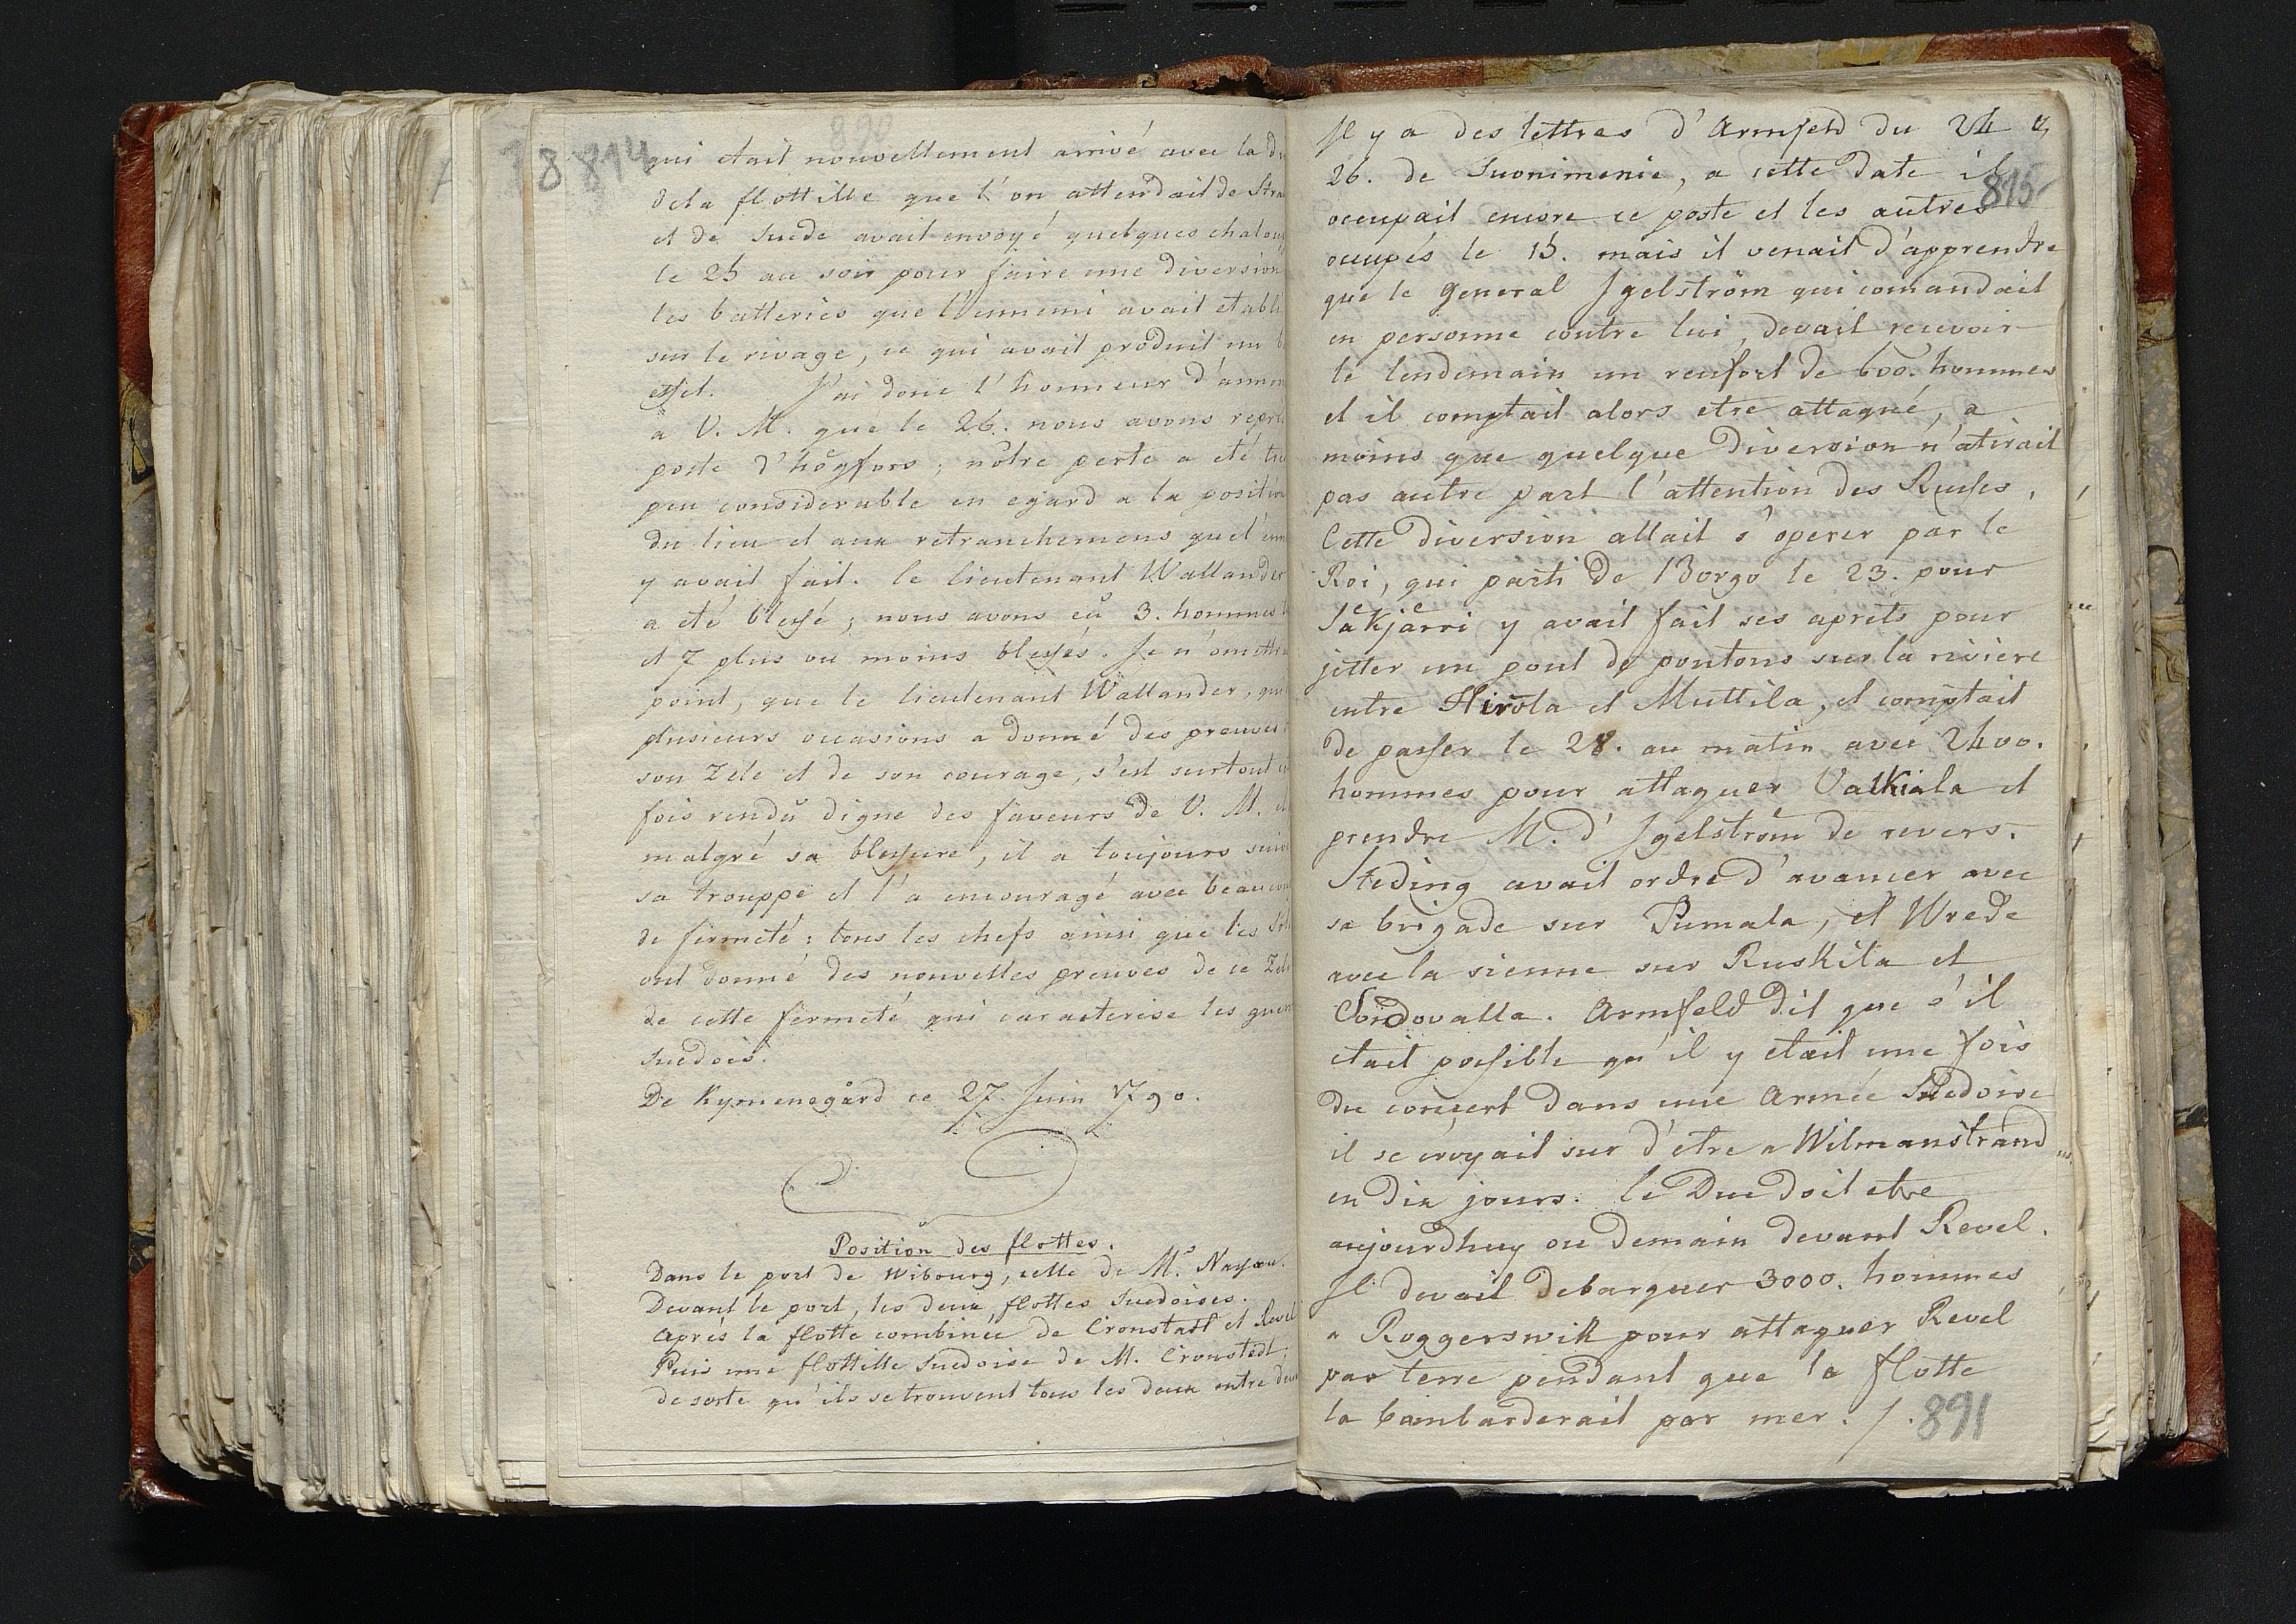 890
8 814
qui etait nouvellement arrivé avec la
dela flottille que l'on attendait de Stra
et de Suede avait envoyé quelques chalou
le 25 au soir pour faire une diversion
les batteries que l'ennemi avait etabli
sur le rivage, ce qui avait produit un b
effet. J'ai donc l'honneur d'annon
a V. M. que le 26. nous avons repri
poste d'högfors; nôtre perte a eté tre
peu considerable en egard a la position
du lieu et aux retranchemens que l'enn
y avait fait. le lieutenant Wallander
a eté blessé; nous avons eu 3. hommes
et 7 plus ou moins blessés. Je n'omettra
point, que le lieutenant Wallander, qui
plusieurs occasions a donné des preuves
son Zele et de son courage, s'est surtout
fois rendu digne des faveurs de V. M. et
malgré sa blessure, il a toujours suivi
sa trouppe et l'a encouragé avec beaucoup
de fermeté: tous les chefs ainsi que les
ont donné des nouvelles preuves de ce Zele
de cette fermeté qui caracterise les guer
Suedois.
De Kymenegård ce 27. Juin 1790.
Position des flottes.
Dans le port de Wibourg, celle de M. Nassau.
Devant le port, les deux flottes Suedoises.
Après la flotte combinée de Cronstatt et Revel
Puis une flottille Suedoise de M. Cronstedt;
de sorte qu'ils se trouvent tous les deux entre deux
Il y a des lettres d'Armfeld du 24 &
26. de Suonimenie, a cette date il
815
occupait encore ce poste et les autres
occupés le 15. mais il venait d'apprendre
que le General Igelström qui comandait
en personne contre lui, devait recevoir
le lendemain un renfort de 600. hommes
et il comptait alors etre attaqué, a
moins que quelque diversion n'atirait
pas autre part l'attention des Russes.
Cette diversion allait s'operer par le
Roi, qui parti de Borgo le 23. pour
Säkjärri y avait fait ses aprets pour
jetter un pont de pontons sur la riviere
entre Hirola et Muttila, et comptait
de passer le 28. au matin avec 2400.
hommes pour attaquer Valkiala et
prendre M. d'Igelström de revers.
Steding avait ordre d'avancer avec
sa brigade sur Pumala, et Wrede
avec la sienne sur Ruskila et
Sordovalla. Armfeld dit que s'il
etait possible qu'il y etait une fois
du concert dans une Armée Suedoise
il se croyait sur d'etre a Wilmanstrand
en dix jours. le Duc doit etre
aujourdhuy ou demain devant Revel.
Il devait debarquer 3000. hommes
a Roggerswik pour attaquer Revel
par terre pendant que la flotte
la bambarderait par mer. /.
891